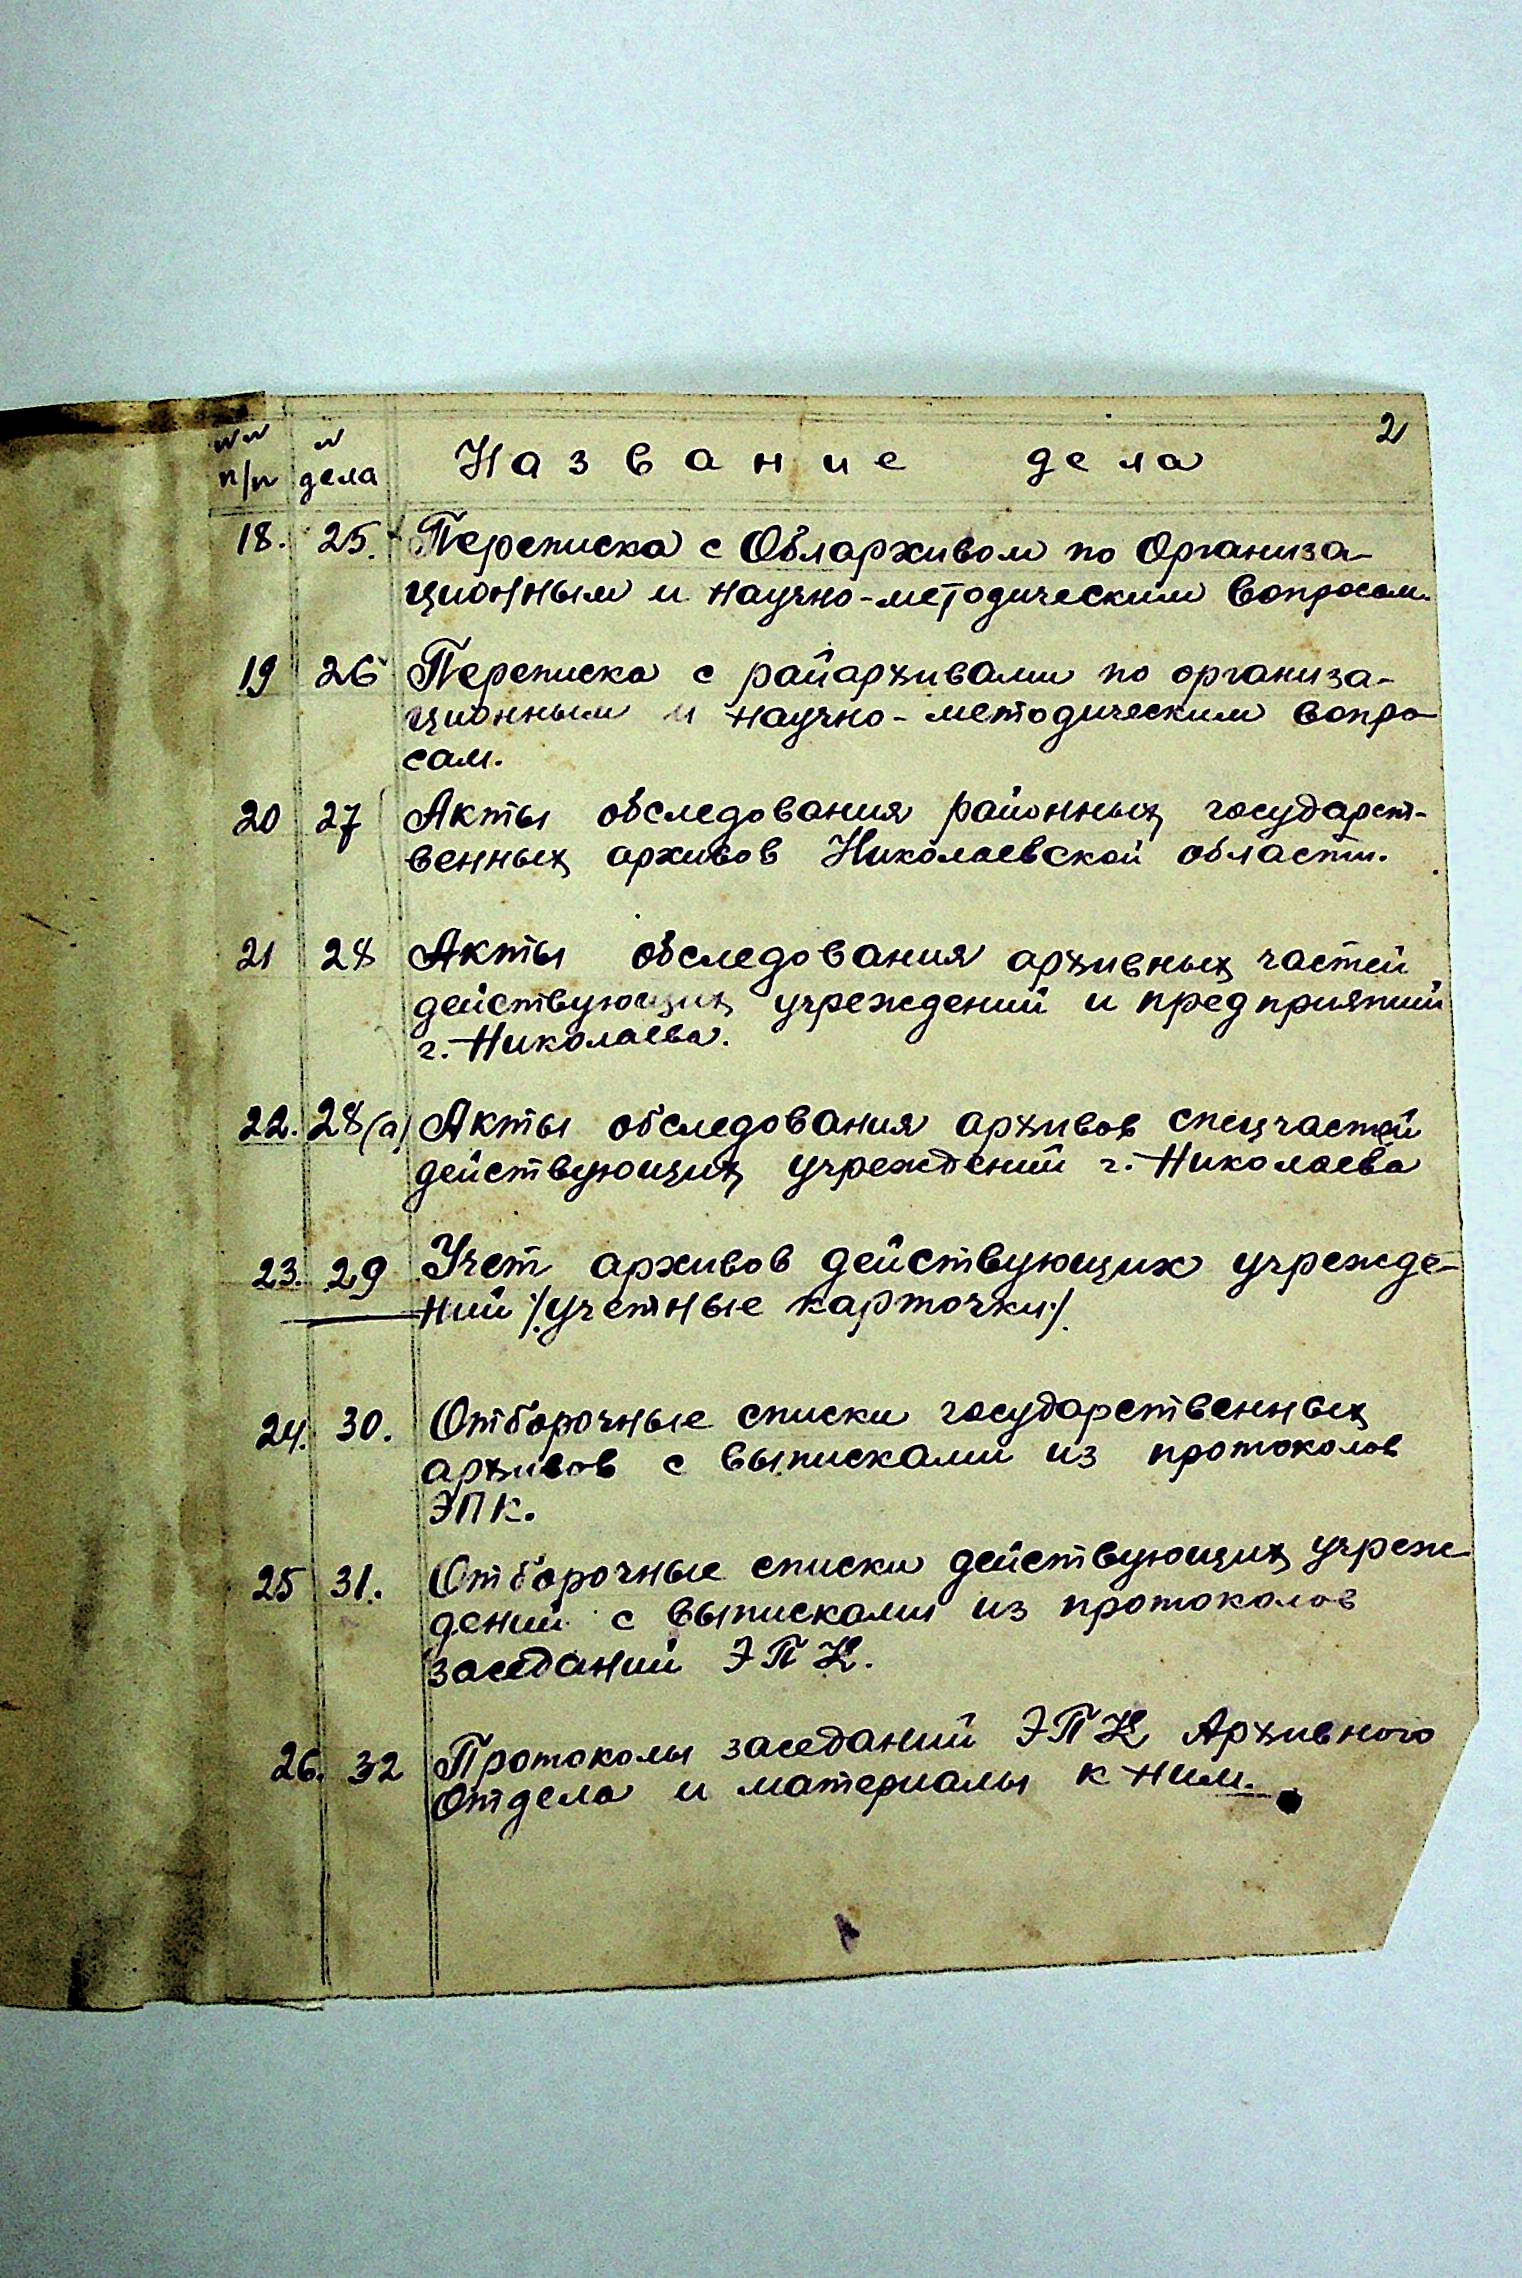 2
№№ № Название дела
п/п дела
18. 25. Переписка с Обларживом по Организа-
ционным и научно-методическим вопросам.
19 26 Переписка с райархивами по организа-
ционным и научно-методическим вопро-
сам.
20 27 Акты обследования районных государст-
венных архивов Николаевской области.
21 28 Акты обследования архивных частей
действующих учреждений и предприятий
г. Николаева.
22. 28(а) Акты обследования архивов спецчастей
действующих учреждений г. Николаева
23. 29 Учет архивов действующих учрежде-
ний /учетные карточки/.
24. 30. Отборочные списки государственных
архивов с выписками из протоколов
ЭПК.
25 31. Отборочные списки действующих учреж-
дений с выписками из протоколов
заседаний ЭПК.
26. 32 Протоколы заседаний ЭПК Архивного
Отдела и материалы к ним.